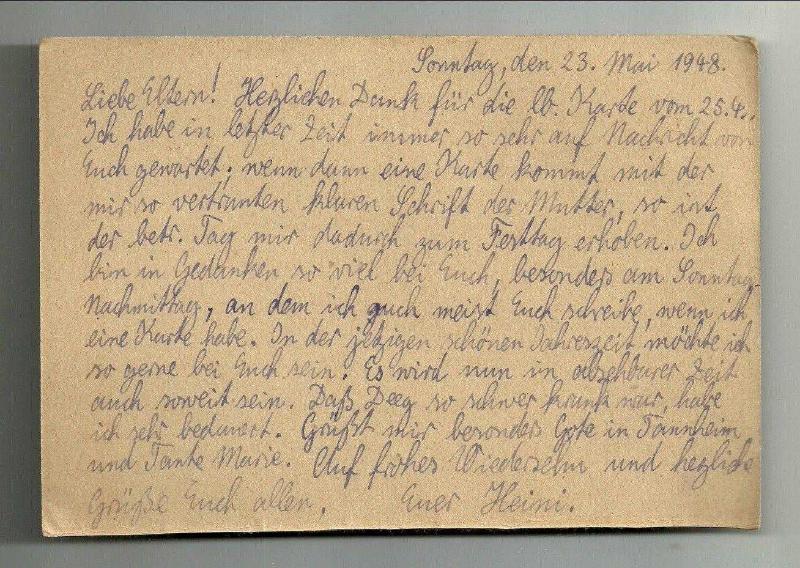 Sonntag, den 23. Mai 1948.
Liebe Eltern! Herzlichen Dank für die lb. Karte vom 25.4.
Ich habe in letzter Zeit immer so sehr auf Nachricht von
Euch gewartet, wenn dann eine Karte kommt mit der
mir so vertrauten klaren Schrift der Mutter, so ist
der betr. Tag mir dadurch zum Festtag erhoben. Ich
bin in Gedanken so viel bei Euch, besonders am Sonntag-
Nachmittag, an dem ich auch meist Euch schreibe, wenn ich
eine Karte habe. In der jetzigen schönen Jahreszeit, möchte ich
so gerne bei Euch sein. Es wird nun in absehbarer Zeit
auch soweit sein. Daß Deeg so schwer krank war, habe
ich sehr bedauert. Grüßt mir besonders Gote in Tannheim
und Tante Marie. Auf frohes Wiedersehn und herzliche
Grüße Euch allen. Euer Heini.